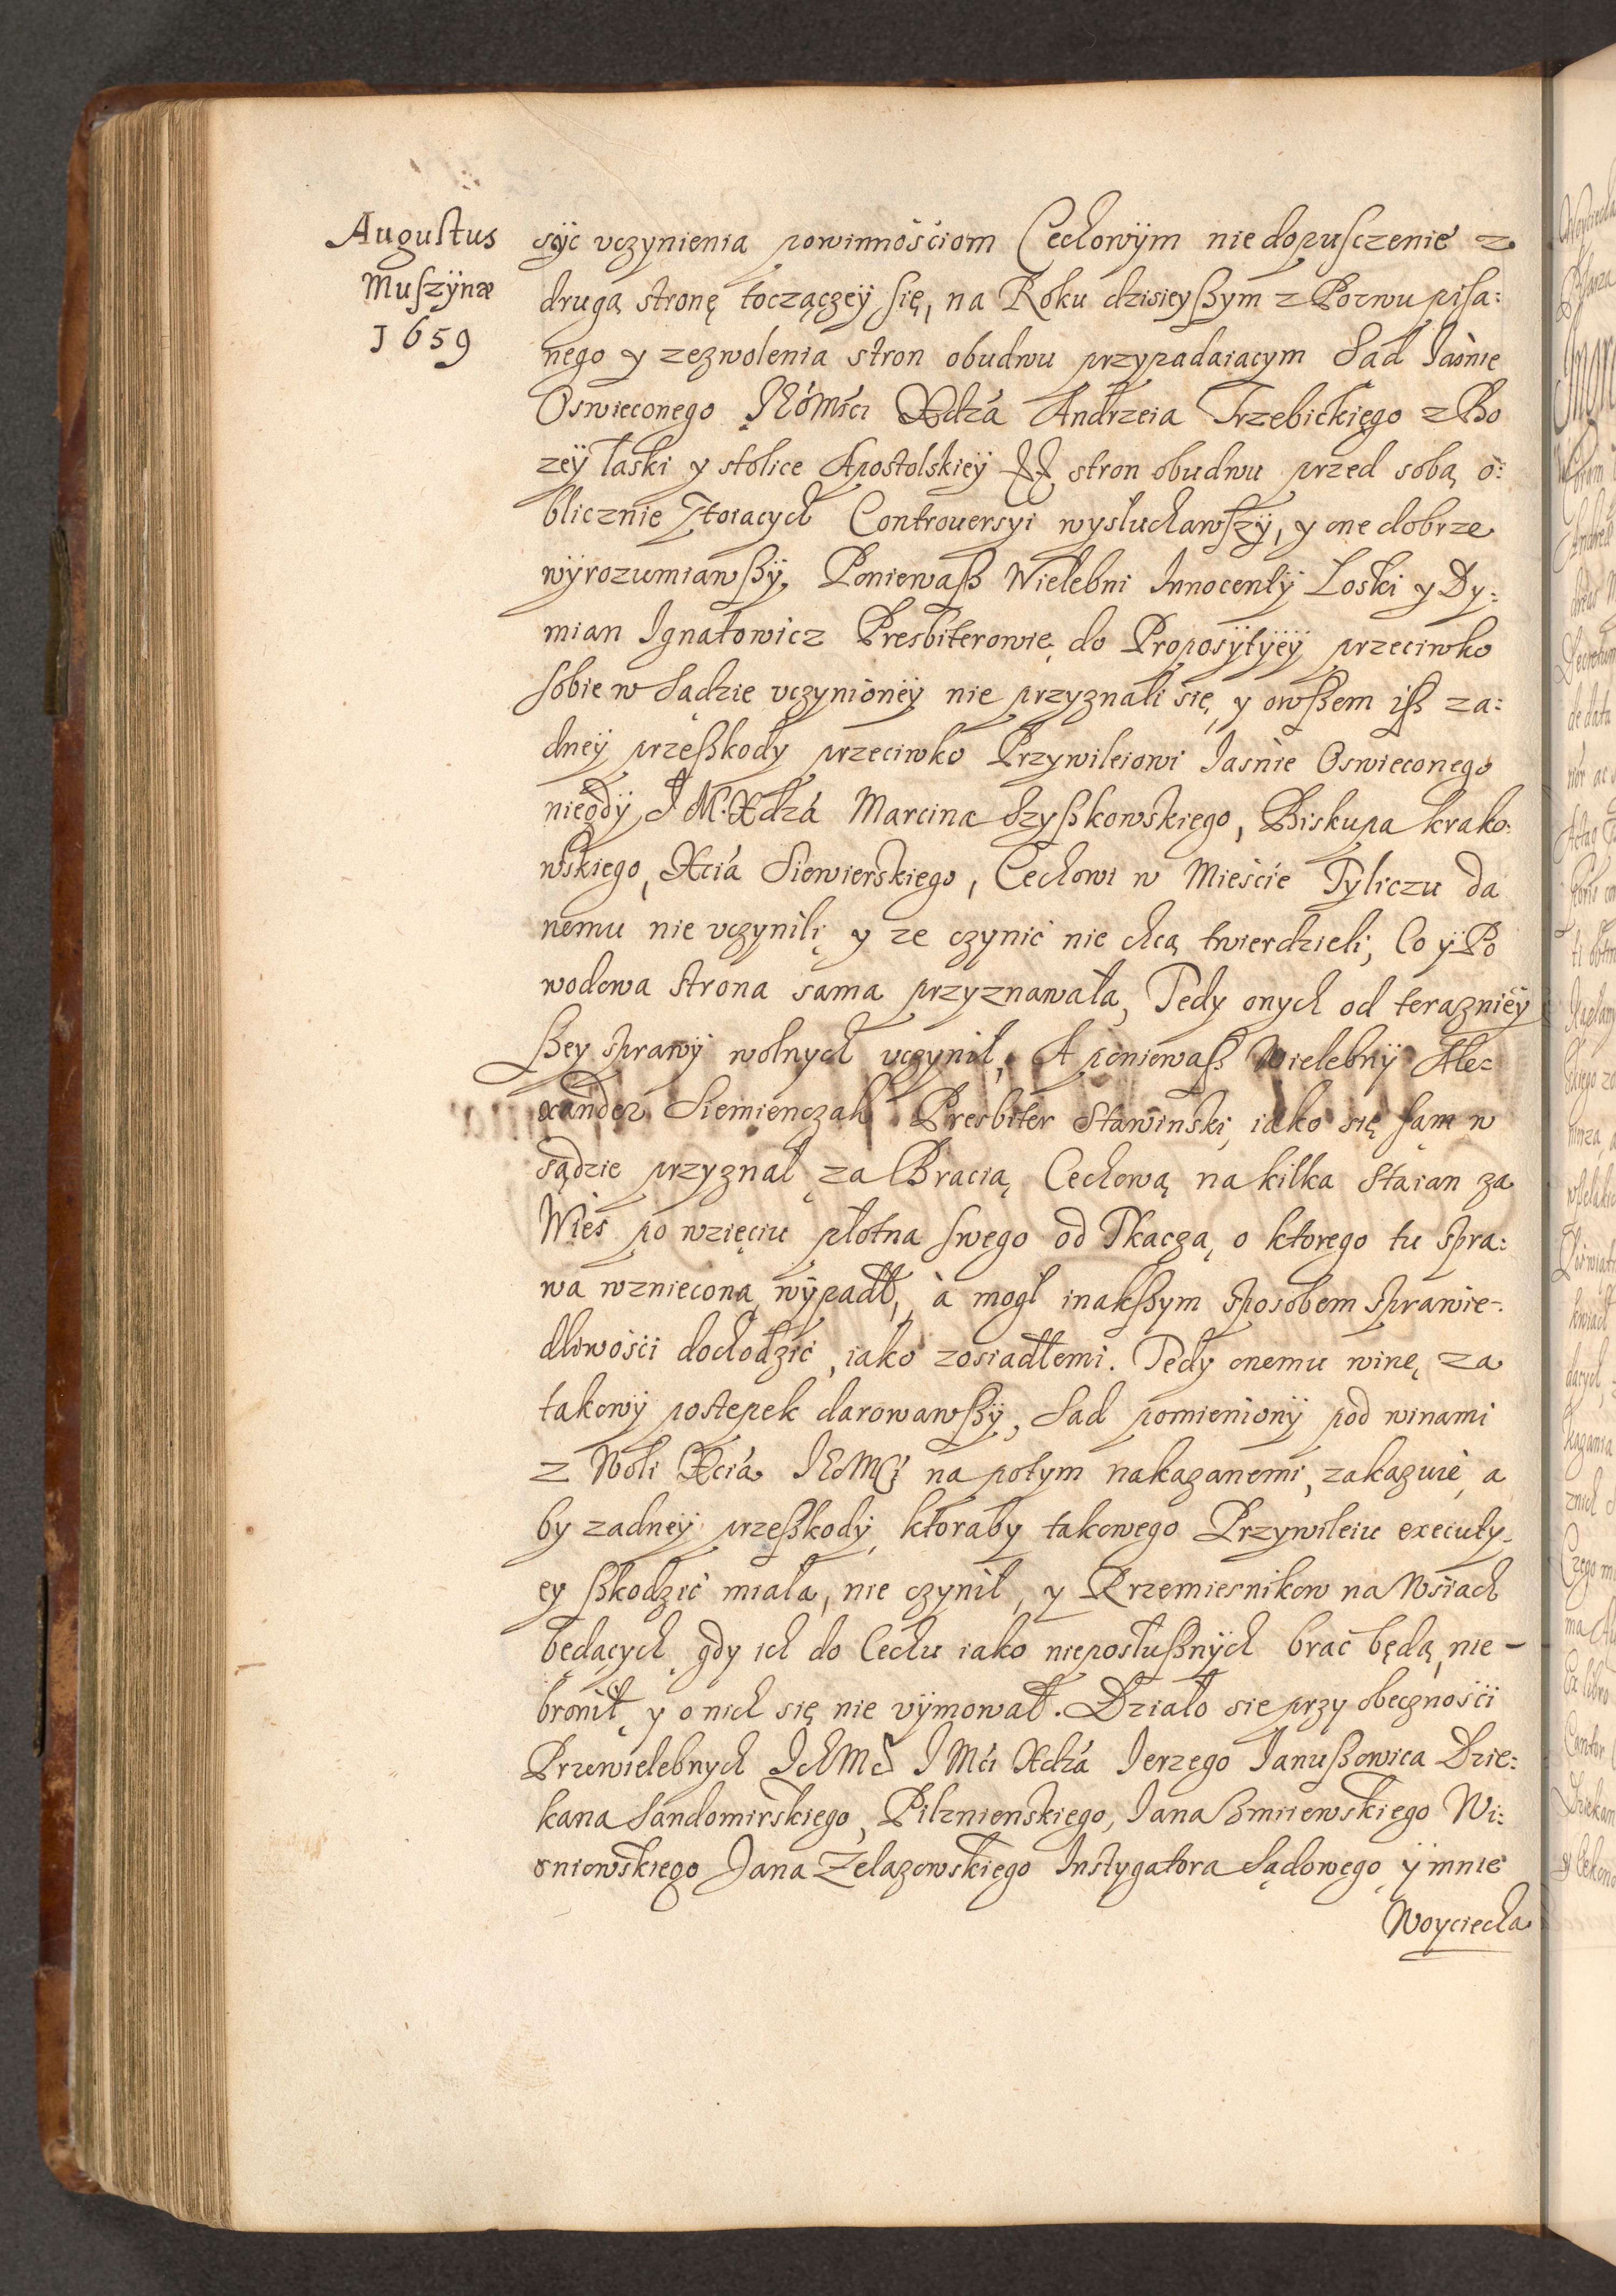 Augustus
Muszÿnæ
1659
sÿc vczynienia powinnośćiom Cechowÿm niedopusczenie z
drugą stronę toczączeÿ się, na Roku dzisieyßym z Pozwu pisa:
nego y zezwolenia stron obudwu przypadaiacym Sad Iaśnie
Oswieconego Xdzá Andrzeia Trzebickięgo z Bo
zeÿ łaski y stolice Apostolskieÿ stron obudwu przed sobą o:
blicznie stoiacych Controuersyi wysłuchawszÿ, y one dobrze
wÿrozumiawßÿ, Poniewaß Wielebni Innocentÿ Loski y Dy:
mian Ignatowicz Presbiterowie, do Proposÿtÿeÿ przeciwko
sobie w Sądzie vczynioneÿ nie przyznali się, y owßem iß za:
dneÿ przeßkody przeciwko Przywileiowi Iaśnie Oswieconego
niegdÿ I M. Xdzá Marcina Szyßkowskiego, Biskupa krako:
wskiego, Xciá Siewierskiego, Cechowi w Mieście Tyliczu da
nemu nie vczynili, y ze czynić nie chcą twierdzieli, Co ÿ Po
wodowa strona sama przyznawała, Tedy onych od terazniéÿ
ßey sprawÿ wolnych vczynił, A poniewaß Wielebnÿ Ale:
xander Siemienczak Presbiter Stawinski, iako się sąm w
sądzie przyznał, za Bracią Cechową na kilka Staian za
Wieś po wzięciu płotna swego od Tkacza, o ktorego tu spra:
wa wzniecona, wÿpadł, à mogł inakßym sposobem sprawie-
dliwośći dochodzić, iako zosiadłemi. Tedy onemu winę za
takowÿ postepek darowawßÿ, Sad pomienionÿ pod winami
z Woli Xciá IEoMCi na potym nakazanemi, zakazuie, a
by zadneÿ przeßkodÿ, ktoraby takowego Przywileiu executy-
ey ßkodzić miała, nie czynił, y Rzemiesnikow na Wśiach
będących, gdy ich do Cechu iako nieposłußnÿch brać będą, nie-
bronił, y o nich się nie vÿmował. Działo sie przy obecznośći
Przewielebnych IchMc I Mći Xdzá Ierzego Ianußowica Dzie:
kana Sandomirskiego, Pilznienskiego, Iana Zmiiewskiego Wi:
sniowskiego Iana Zelazowskiego Instygatora Sądowego, ÿ mnie
Woyciecha